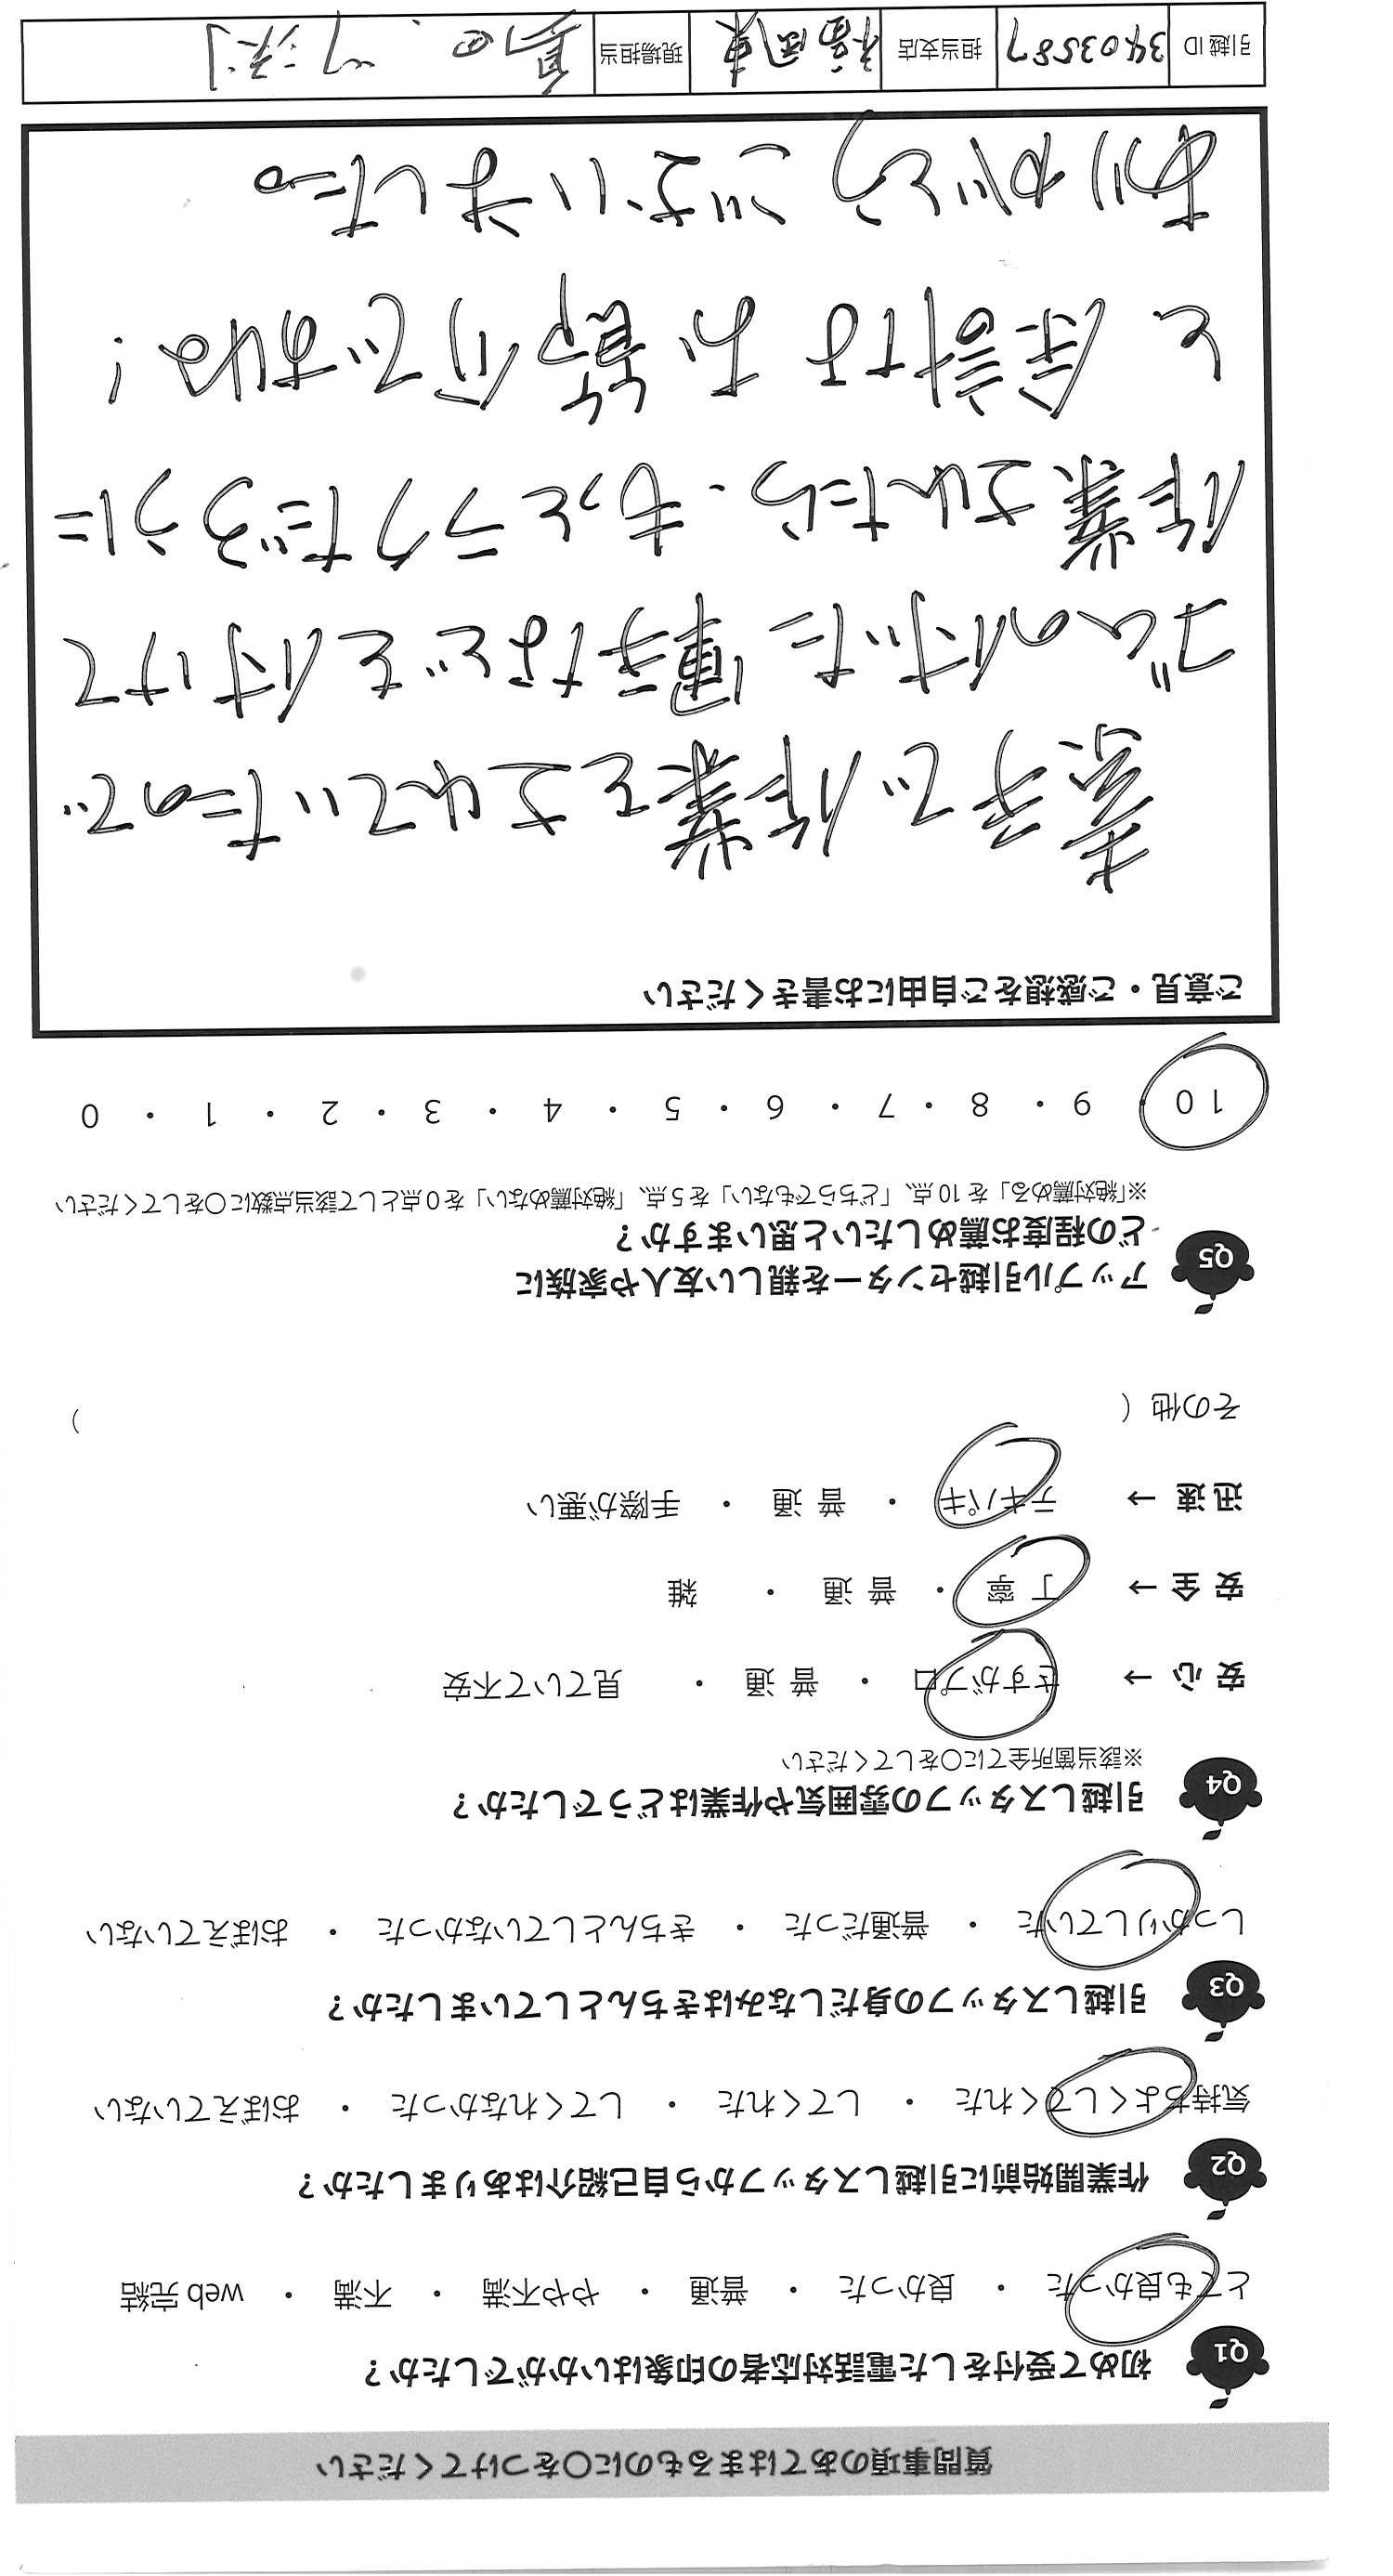 質問事項のあてはまるものに○をつけてください
Q1 初めて受付をした電話対応者の印象はいかがでしたか?
とても良かった ・ 良かった ・ 普通 ・ やや不満 ・ 不満 ・ web 完結
Q2 作業開始前に引越しスタッフから自己紹介はありましたか?
気持ちよくしてくれた ・ してくれた ・ してくれなかった ・ おぼえていない
Q3 引越しスタッフの身だしなみはきちんとしていましたか?
しっかりしていた ・ 普通だった ・ きちんとしていなかった ・ おぼえていない
Q4 引越しスタッフの雰囲気や作業はどうでしたか?
※該当箇所全てに○をしてください
安心 → さすがプロ ・ 普通 ・ 見ていて不安
安全 → 丁寧 ・ 普通 ・ 雑
迅速 → テキパキ ・ 普通 ・ 手際が悪い
その他 ( )
Q5 アップル引越センターを親しい友人や家族に
どの程度お薦めしたいと思いますか?
※「絶対薦める」を10点、「どちらでもない」を5点、「絶対薦めない」を0点として該当点数に○をしてください
10 9 ・ 8 ・ 7 ・ 6 ・ 5 ・ 4 ・ 3 ・ 2 ・ 1 ・ 0
ご意見・ご感想をご自由にお書きください
素手で作業をされていたので
ゴムの付いた軍手などを付けて
作業されたら、もっとラクだろうに
と 余計な お節介ですね!
ありがとう ございました。
引越ID 3403587 担当支店 福岡東 現場担当